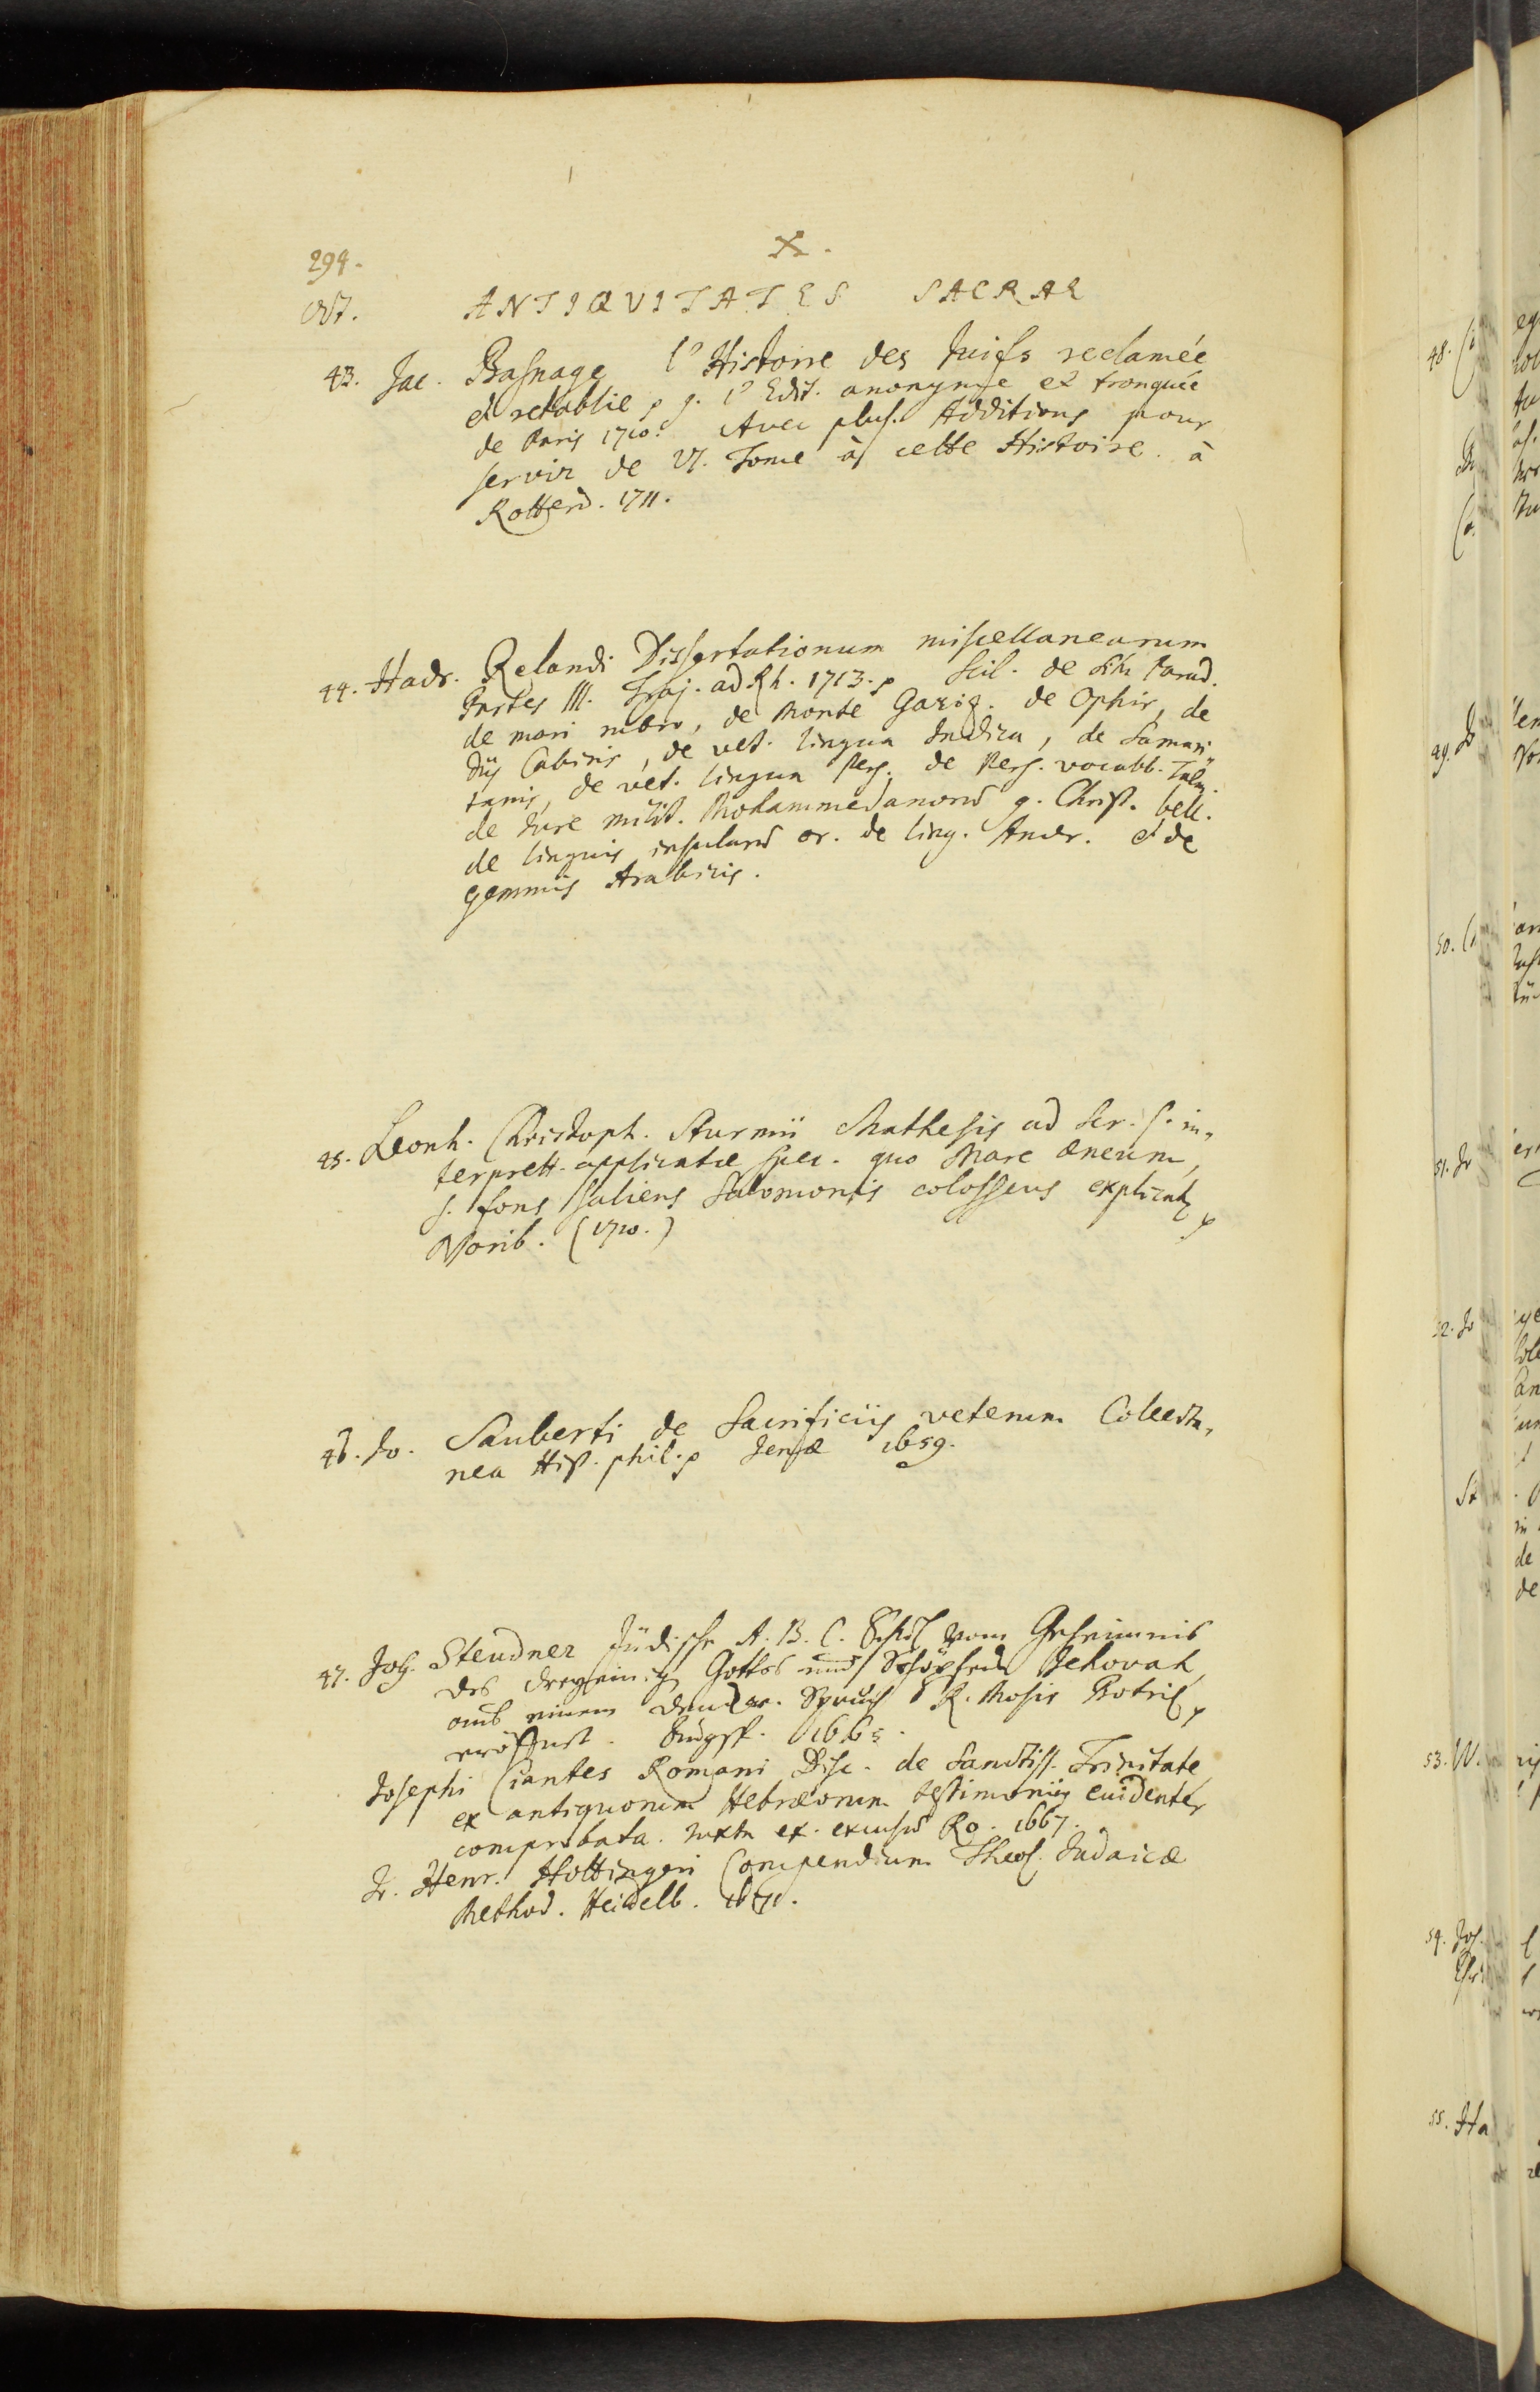 X.
294.
Oct. ANTIQVITATES SACRAE
43. Jac. Basnage l'Histoire des Juifs reclamée
et retablie p g. l'Edit. anonyme et tronquée
de Paris 1710. Avec plus. Additions pour
servir de VI. Tome à cette Histoire. à
Rotterd. 1711.
44. Hadr. Relandi Dissertationum miscellanearum
Partes III. Traj. ad Rh. 1713. p Scil. de situ Parad.
de mari rubro, de Monte Gariz. de Ophir, de
Diis Cabiris, de vet. lingua Indica, de Samari
tanis, de vet. lingua Pers. de Pers. vocabb. Talm.
de Jure milit. Mohammedanorum g. Christ. bell.
de linguis insularum or. de ling. Amer. et de
gemmis Arabicis.
45. Leonh. Christoph. Sturmii Mathesis ad Scr. S. in-
terprett. applicatæ spec. quo Mare æneum,
s. fons saliens Salomonis colosseus explicatr p
Norib. (1710.)
46. Jo. Sauberti de Sacrificiis veterum Collecta-
nea Hist. phil. p Jenæ 1659.
47. Joh. Steudner Jüdische A. B. C. Schul vom Geheimnis
des dreyeinigen Gottes und Schöpfers Jehovah,
aus einem Spruch R. Mosis Botril p
eröffnet. Augsp. 1665.
Josephi Ciantes Romani Disc. de Sanctiss. Trinitate
ex antiquorum Hebræorum testimoniis euidenter
comprobata. juxta ex. excusum Ro. 1667.
Jo. Henr. Hottingeri Compendium Theol. Judaicæ
Method. Heidelb. 1671.
48.
49.
50.
51. Jo
52. Jo
53. W.
54. Joh.
55. Ha